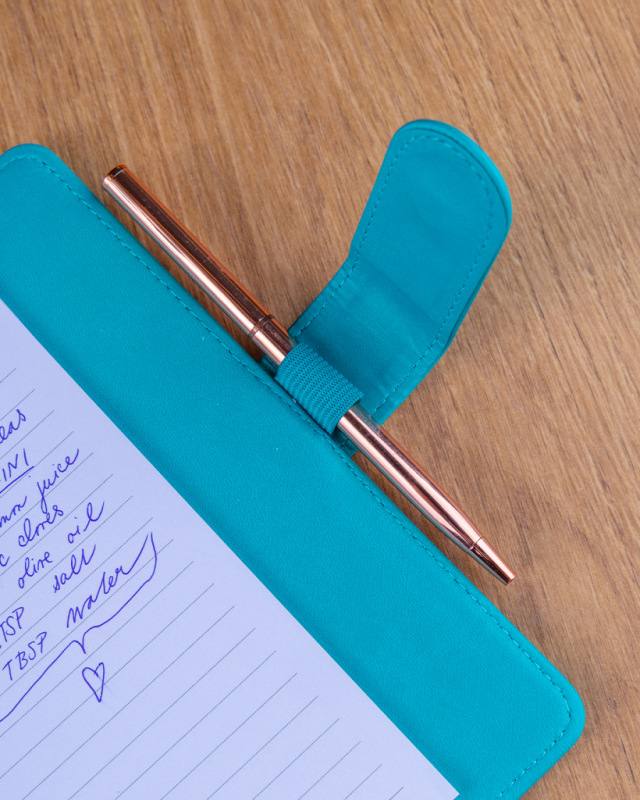 eas
INI
mon juice
c cloves
olive oil
TSP salt
TBSP water